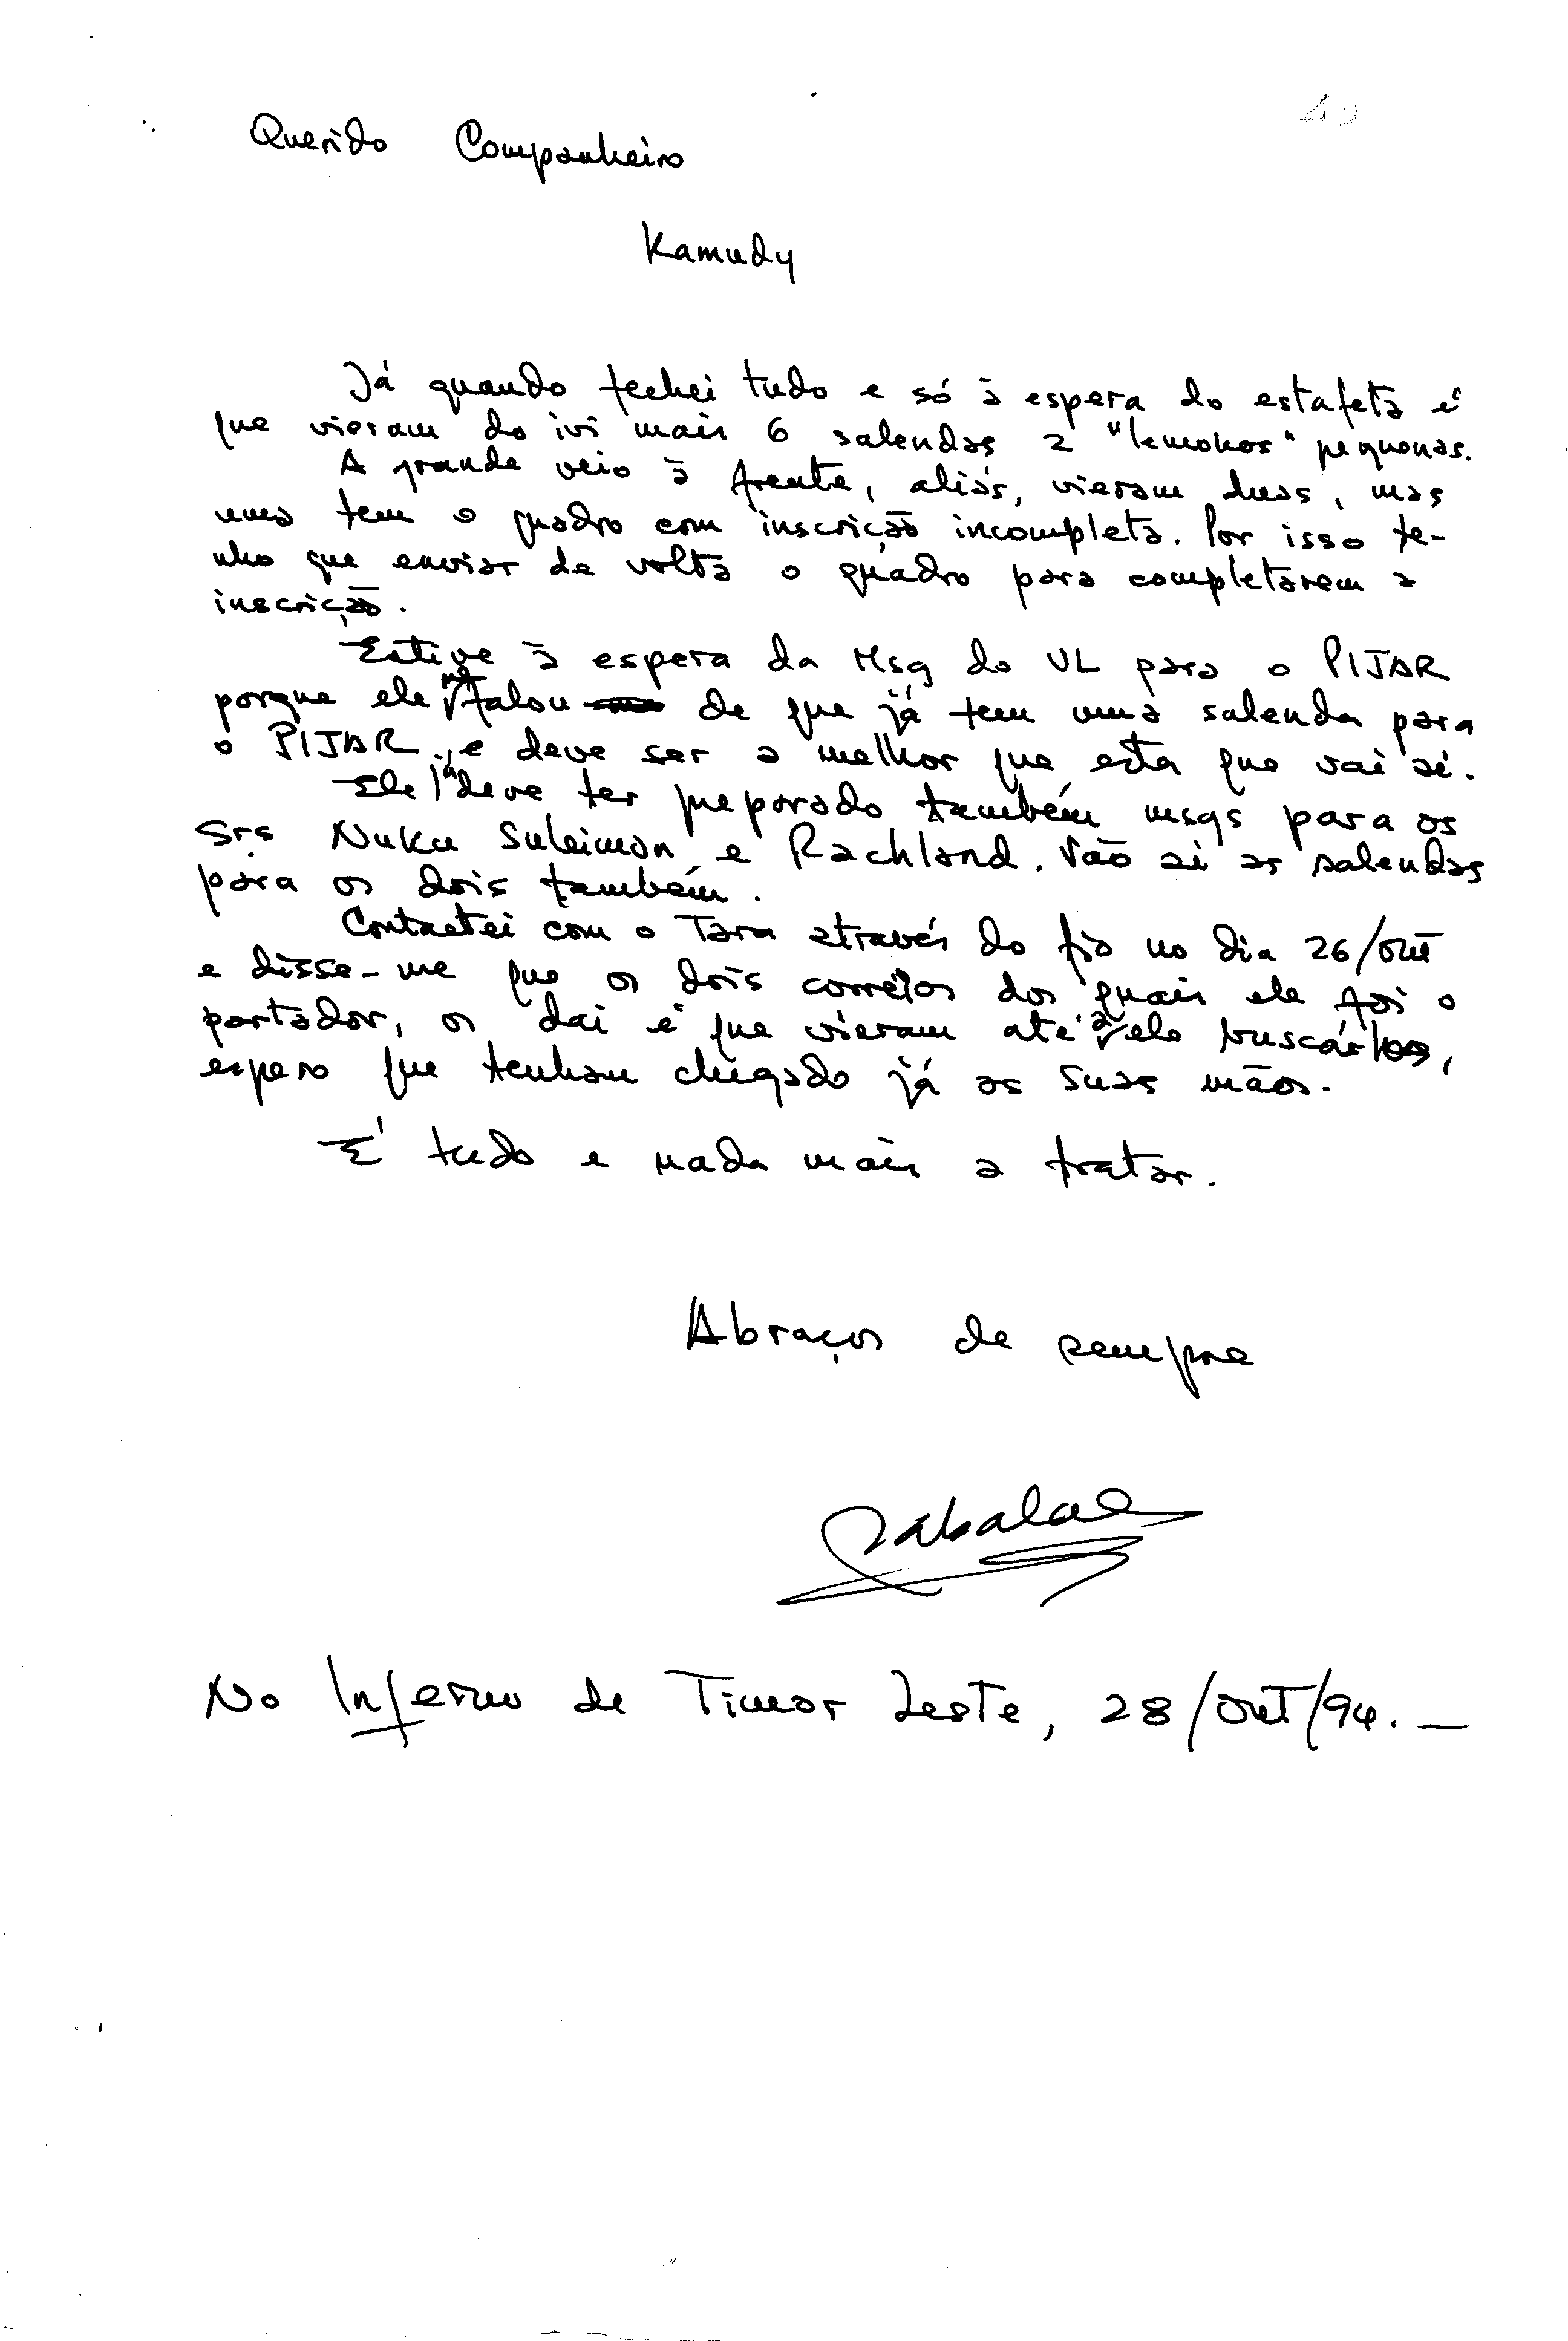 40
Querido Companheiro
Kamudy
Já quando fechei tudo e só à espera do estafeta é
que vieram do ivi mais 6 salendas 2 "lemokos" pequenas.
A grande veio à frente, aliás, vieram duas, mas
uma tem o quadro com inscrição incompleta. Por isso te-
nho que enviar de volta o quadro para completarem a
inscrição.
Estive à espera da Msg do VL para o PIJAR
porque ele me falou de que já tem uma salenda para
o PIJAR, e deve ser a melhor que esta que vai aí.
Ele lá deve ter preparado também msgs para os
Srs Nuku Suleiman e Rachland. Vão aí as salendas
para os dois também.
Contactei com o Tara através do fio no dia 26/Out
e disse-me que os dois correios dos quais ele foi o
portador, os daí é que vieram até a ele buscá-los,
espero que tenham chegado já as suas mãos.
É tudo e nada mais a tratar.
Abraços de sempre
Sabalae
No Inferno de Timor Leste, 28/Out/94.—